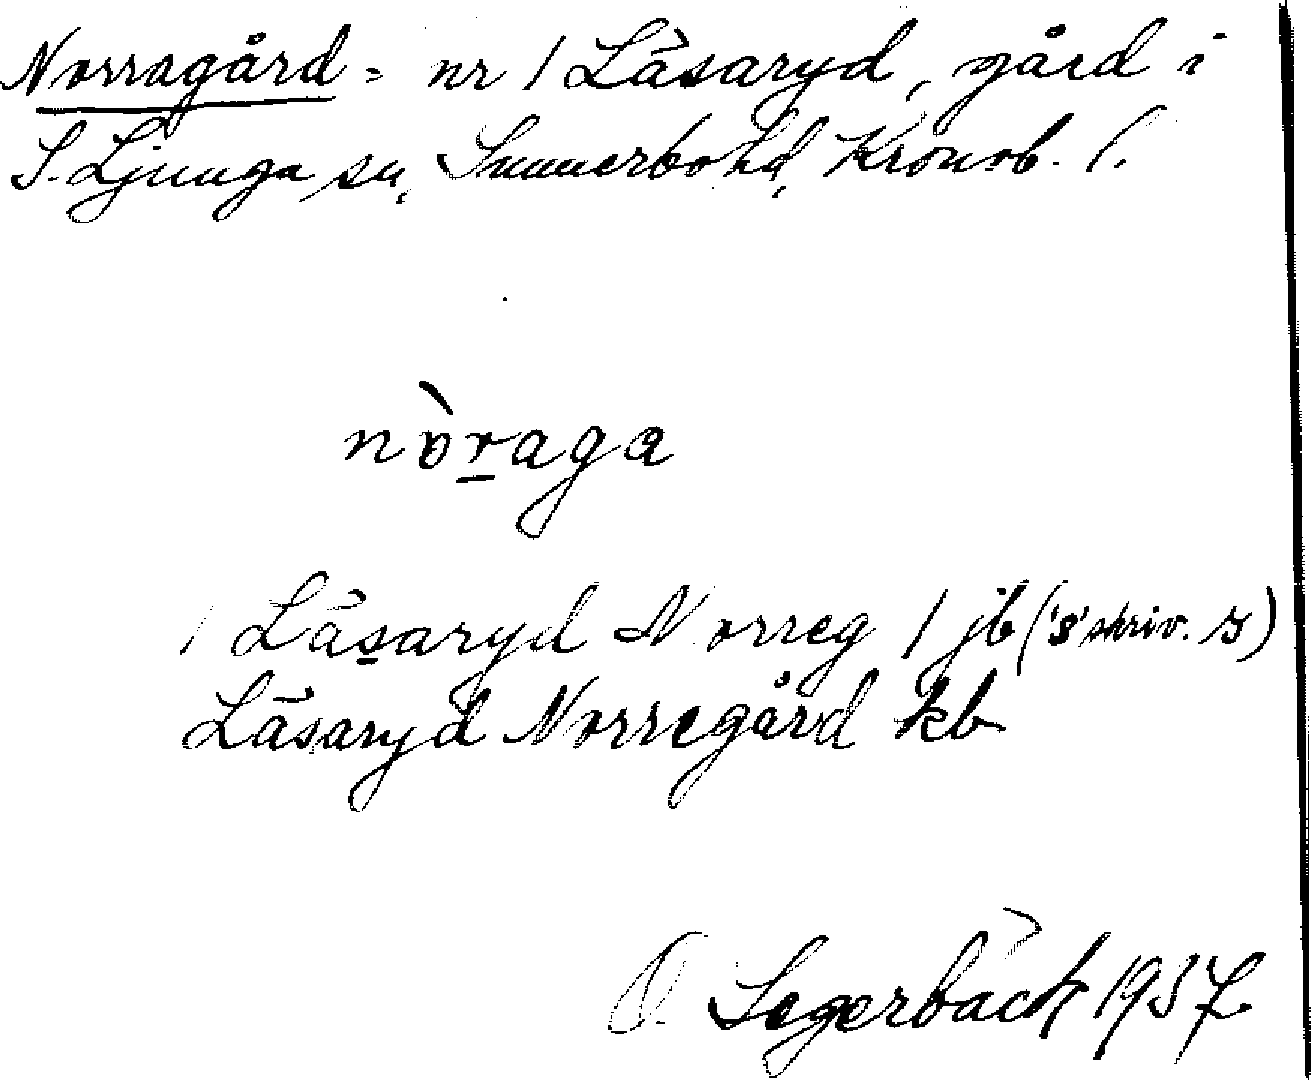 Norragård = nr 1 Läsaryd, gård i
S. Ljunga sn, Sunnerbo hd, Kronob. l.
nòraga
1 Läsaryd Norreg 1 jb ('s' skriv. s)
Läsaryd Norregård kb
O. Segerbäck 1937